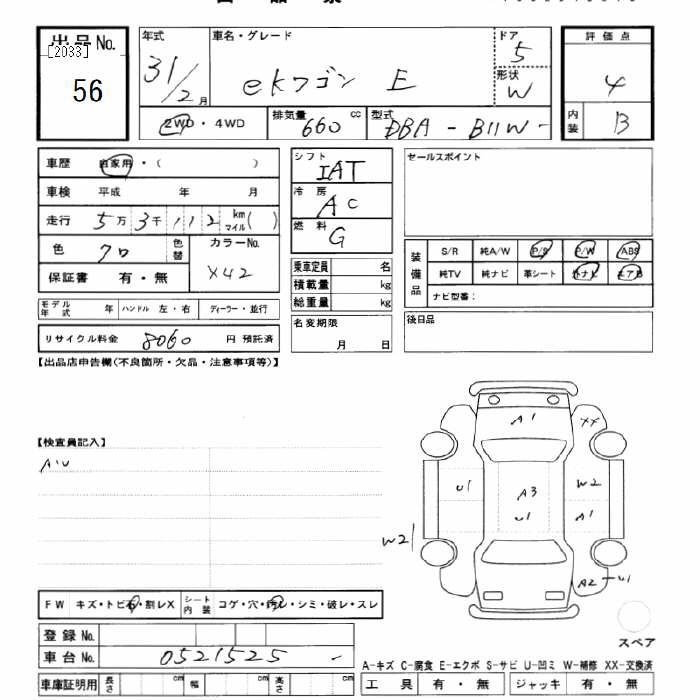 出品No.
[2033]
56
年式
31/2月
車名・グレード
ekワゴン E
ドア
5
形状
W
評価点
4
内装
B
2WD・4WD
排気量
660 cc
型式
DBA - B11W -
車歴 自家用・( )
車検 平成 年 月
走行 5万3千112 km マイル( )
色 クロ 色替
カラーNo.
X42
保証書 有・無
モデル年式 年 ハンドル 左・右 ディーラー・並行
リサイクル料金 8060 円 預託済
シフト
IAT
冷房
AC
燃料
G
乗車定員 名
積載量 kg
総重量 kg
名変期限
月 日
セールスポイント
装備品
S/R 純A/W P/S P/W ABS
純TV 純ナビ 革シート
ナビ型番:
後日品
【出品店申告欄(不良箇所・欠品・注意事項等)】
【検査員記入】
A1
XX
U1
A3
U1
W2
A1
W2
A2
U1
FW キズ・トビ石・割レX
シート内装 コゲ・穴・汚レ・シミ・破レ・スレ
登録No.
車台No. 0521525 -
車庫証明用 長さ cm 幅 cm 高さ cm
スペア
A-キズ C-腐食 E-エクボ S-サビ U-凹ミ W-補修 XX-交換済
工具 有・無 ジャッキ 有・無